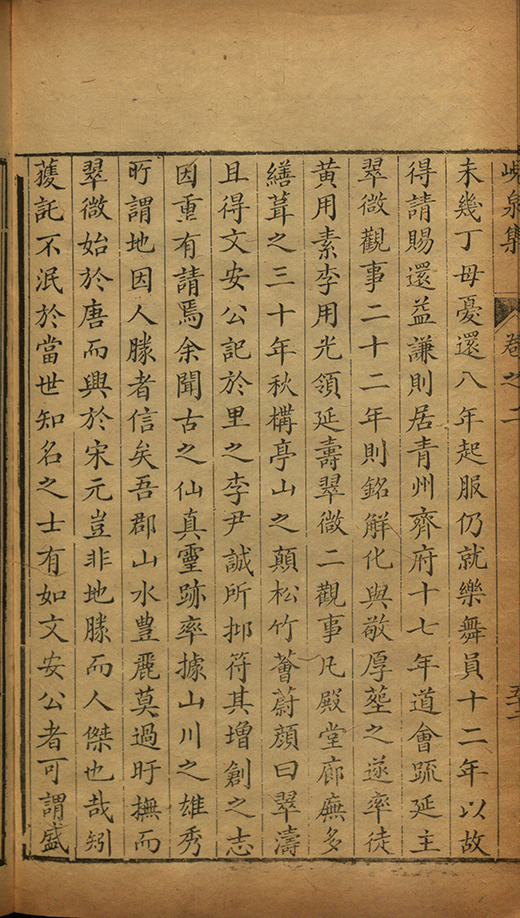 峴泉集 卷之二 五十二
未幾丁母憂還八年起服仍就樂舞員十二年以故
得請賜還益謙則居青州齊府十七年道會䟽延主
翠微觀事二十二年則銘解化與敬厚塟之遂率徒
黃用素李用光領延壽翠微二觀事凡殿堂廊廡多
繕葺之三十年秋構亭山之顛松竹薈蔚顏曰翠濤
且得文安公記於里之李尹誠所抑符其增創之志
因重有請焉余聞古之仙真靈跡率據山川之雄秀
所謂地因人勝者信矣吾郡山水豊麗莫過盱撫而
翠微始於唐而興於宋元豈非地勝而人傑也哉矧
蒦託不泯於當世知名之士有如文安公者可謂盛